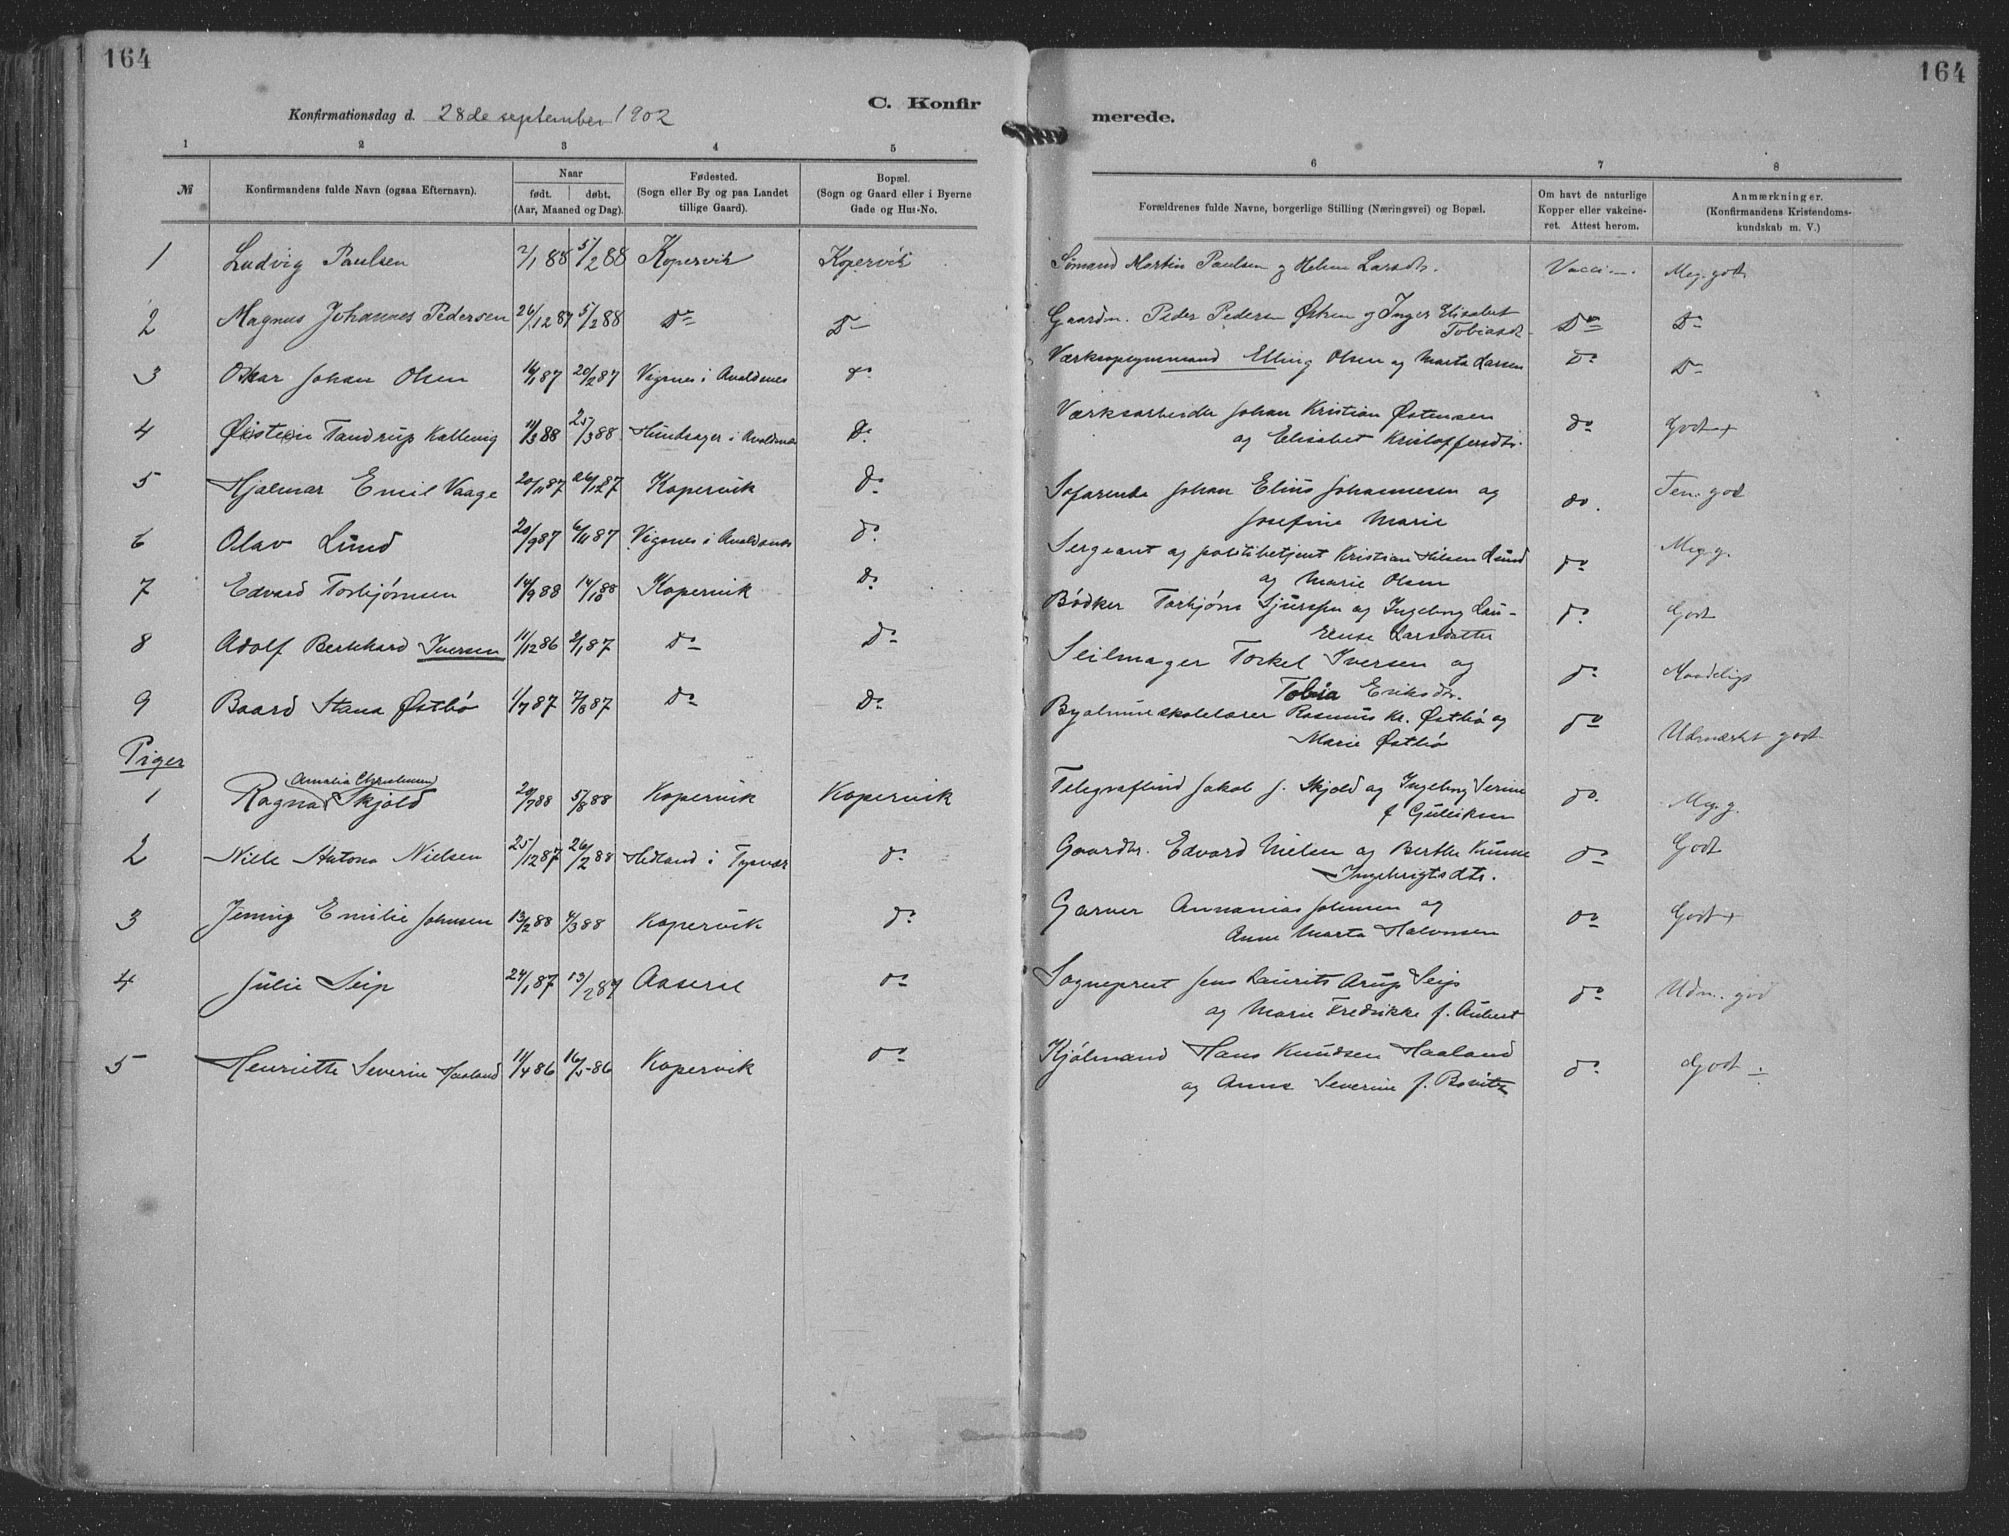 164
164
Konfirmationsdag d. 28de september 1902
C. Konfir
merede.
1 2 3 4 5 6 7 8
№
Konfirmandens fulde Navn (ogsaa Efternavn).
Naar
født. døbt.
(Aar, Maaned og Dag).
Fødested.
(Sogn eller By og paa Landet
tillige Gaard).
Bopæl.
(Sogn og Gaard eller i Byerne
Gade og Hus-No.
Forældrenes fulde Navne, borgerlige Stilling (Næringsvei) og Bopæl.
Om havt de naturlige
Kopper eller vakcine-
ret. Attest herom.
Anmærkninger.
(Konfirmandens Kristendoms-
kundskab m. V.)
1 Ludvig Paulsen 2/1 88 5/2 88 Kopervik Kopervik Sømand Martin Paulsen og Helene Larsdtr. Vacci Meg. godt
2 Magnus Johannes Pedersen 26/12 87 5/2 88 Do Do Gaardm. Peder Pedersen Østrem og Inger Elisabet
Tobiasdtr. Do Do
3 Oskar Johan Olsen 16/1 87 20/2 87 Vigsnes i Avaldsnes do Elling Olsen og Marta Larsen Do Do
4 Øistein Tandrup Kallevig 11/3 88 25/3 88 Hundsager i Avaldsnes Do. Værksarbeider Johan Kristian Østensen
og Elisabet Kristoffersdtr. do Godt +
5 Hjalmar Emil Vaage 20/11 87 26/12 87 Kopervik Do Søfarende Johan Elius Johannesen og
Josefine Marie do. Tem. god
6 Olav Lund 20/9 87 6/11 87 Vigsnes i Avaldsnes do. Sergeant og politibetjent Kristian Nilsen Lund
og Marie Olsen do Meg. g.
7 Edvard Torbjørnsen 14/9 88 14/10 88 Kopervik Do Bødker Torbjørn Sjursen og Ingeborg Lau-
rense Larsdatter do. Godt
8 Adolf Bernhard Iversen 11/12 86 2/1 87 Do Do Seilmager Torkel Iversen og
Tobia Eriksdtr. do Maadeligt
9 Baard Stana Østbø 1/7 87 7/8 87 Do Do. Byalmueskolelærer Rasmus Kr. Østbø og
Marie Østbø do Udmærket godt
Piger
Amalia
1 Ragna Skjold 20/7 88 5/8 88 Kopervik Kopervik Telegraflind Jakob J. Skjold og Ingeborg Serine
f Gulliksen do. Meg. g.
2 Nille Antona Nielsen 25/12 87 26/2 88 Hetland i Tysvær do Gaardbr. Edvard Nielsen og Berthe Kunne
Ingebrigtsdtr. do Godt
3 Jenny Emilie Johnsen 13/2 88 4/3 88 Kopervik do. Garver Annanias Johnsen og
Anne Marta Halvorsen do Godt +
4 Julie Seip 24/1 87 13/2 87 Aaseral do Sogneprest Jens Laurits Arup Seip
og Marie Fredrikke f. Aubert do Udm. god
5 Henriette Severine Haaland 11/4 86 16/5 86 Kopervik do Kjølmand Hans Knudsen Haaland
og Anne Severine f. do. Godt ÷